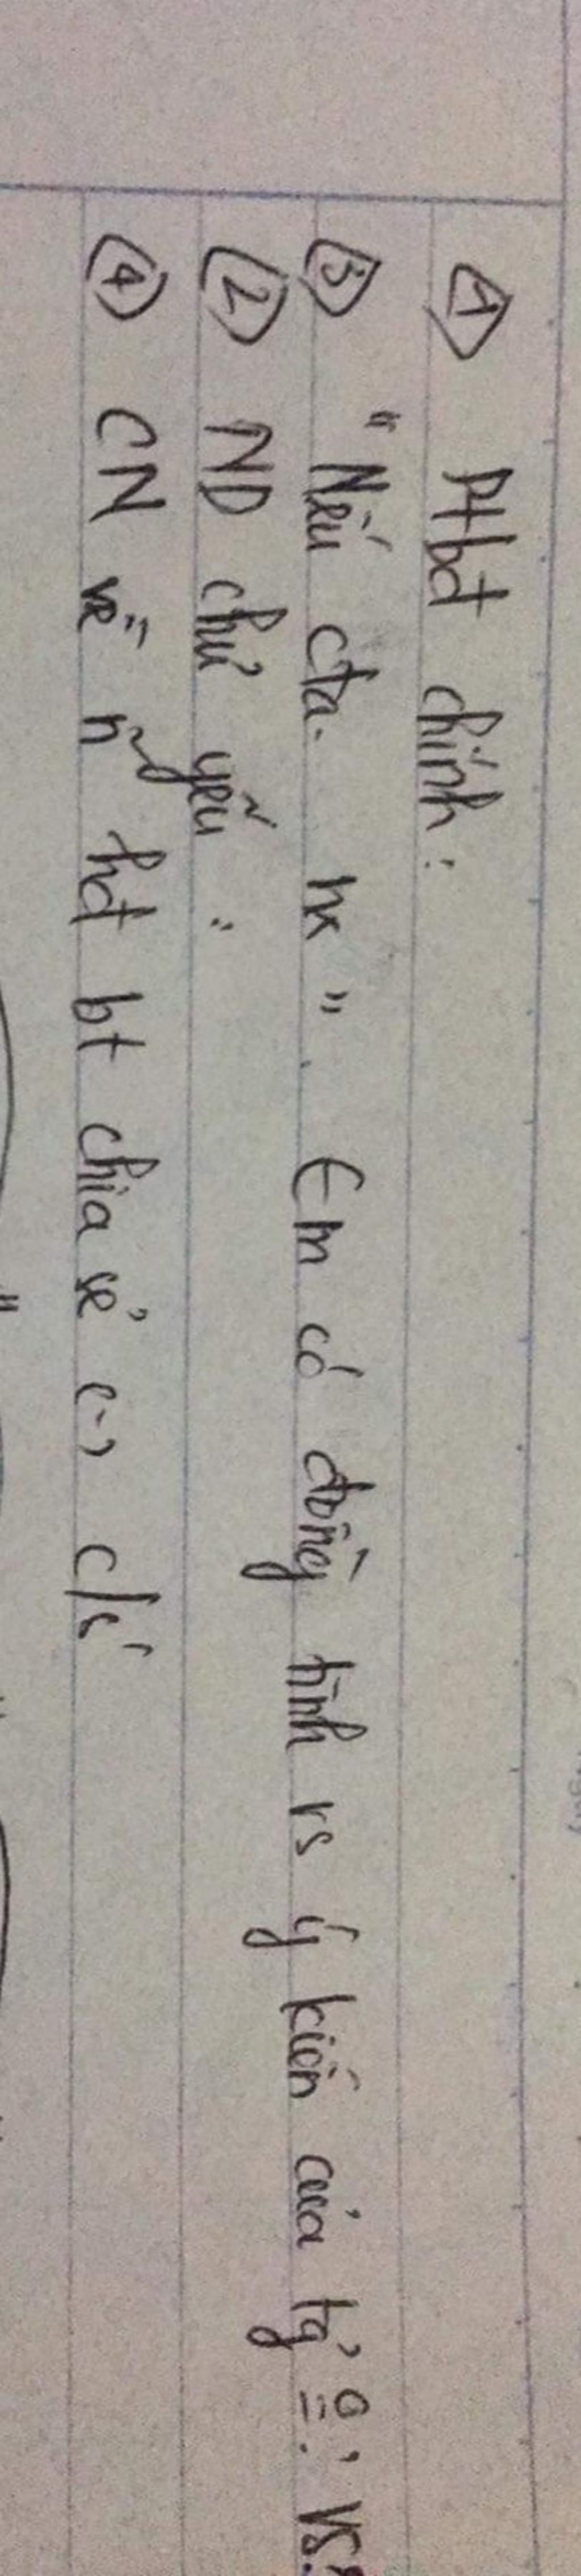 ① Ptbđ chính:
③ "Nếu cta. hk". Em có đồng tình vs ý kiến của tg̉ 0̳? Vs?
② ND chủ yếu:
④ CN về n~ hđ bt chia sẻ (-) c/s'